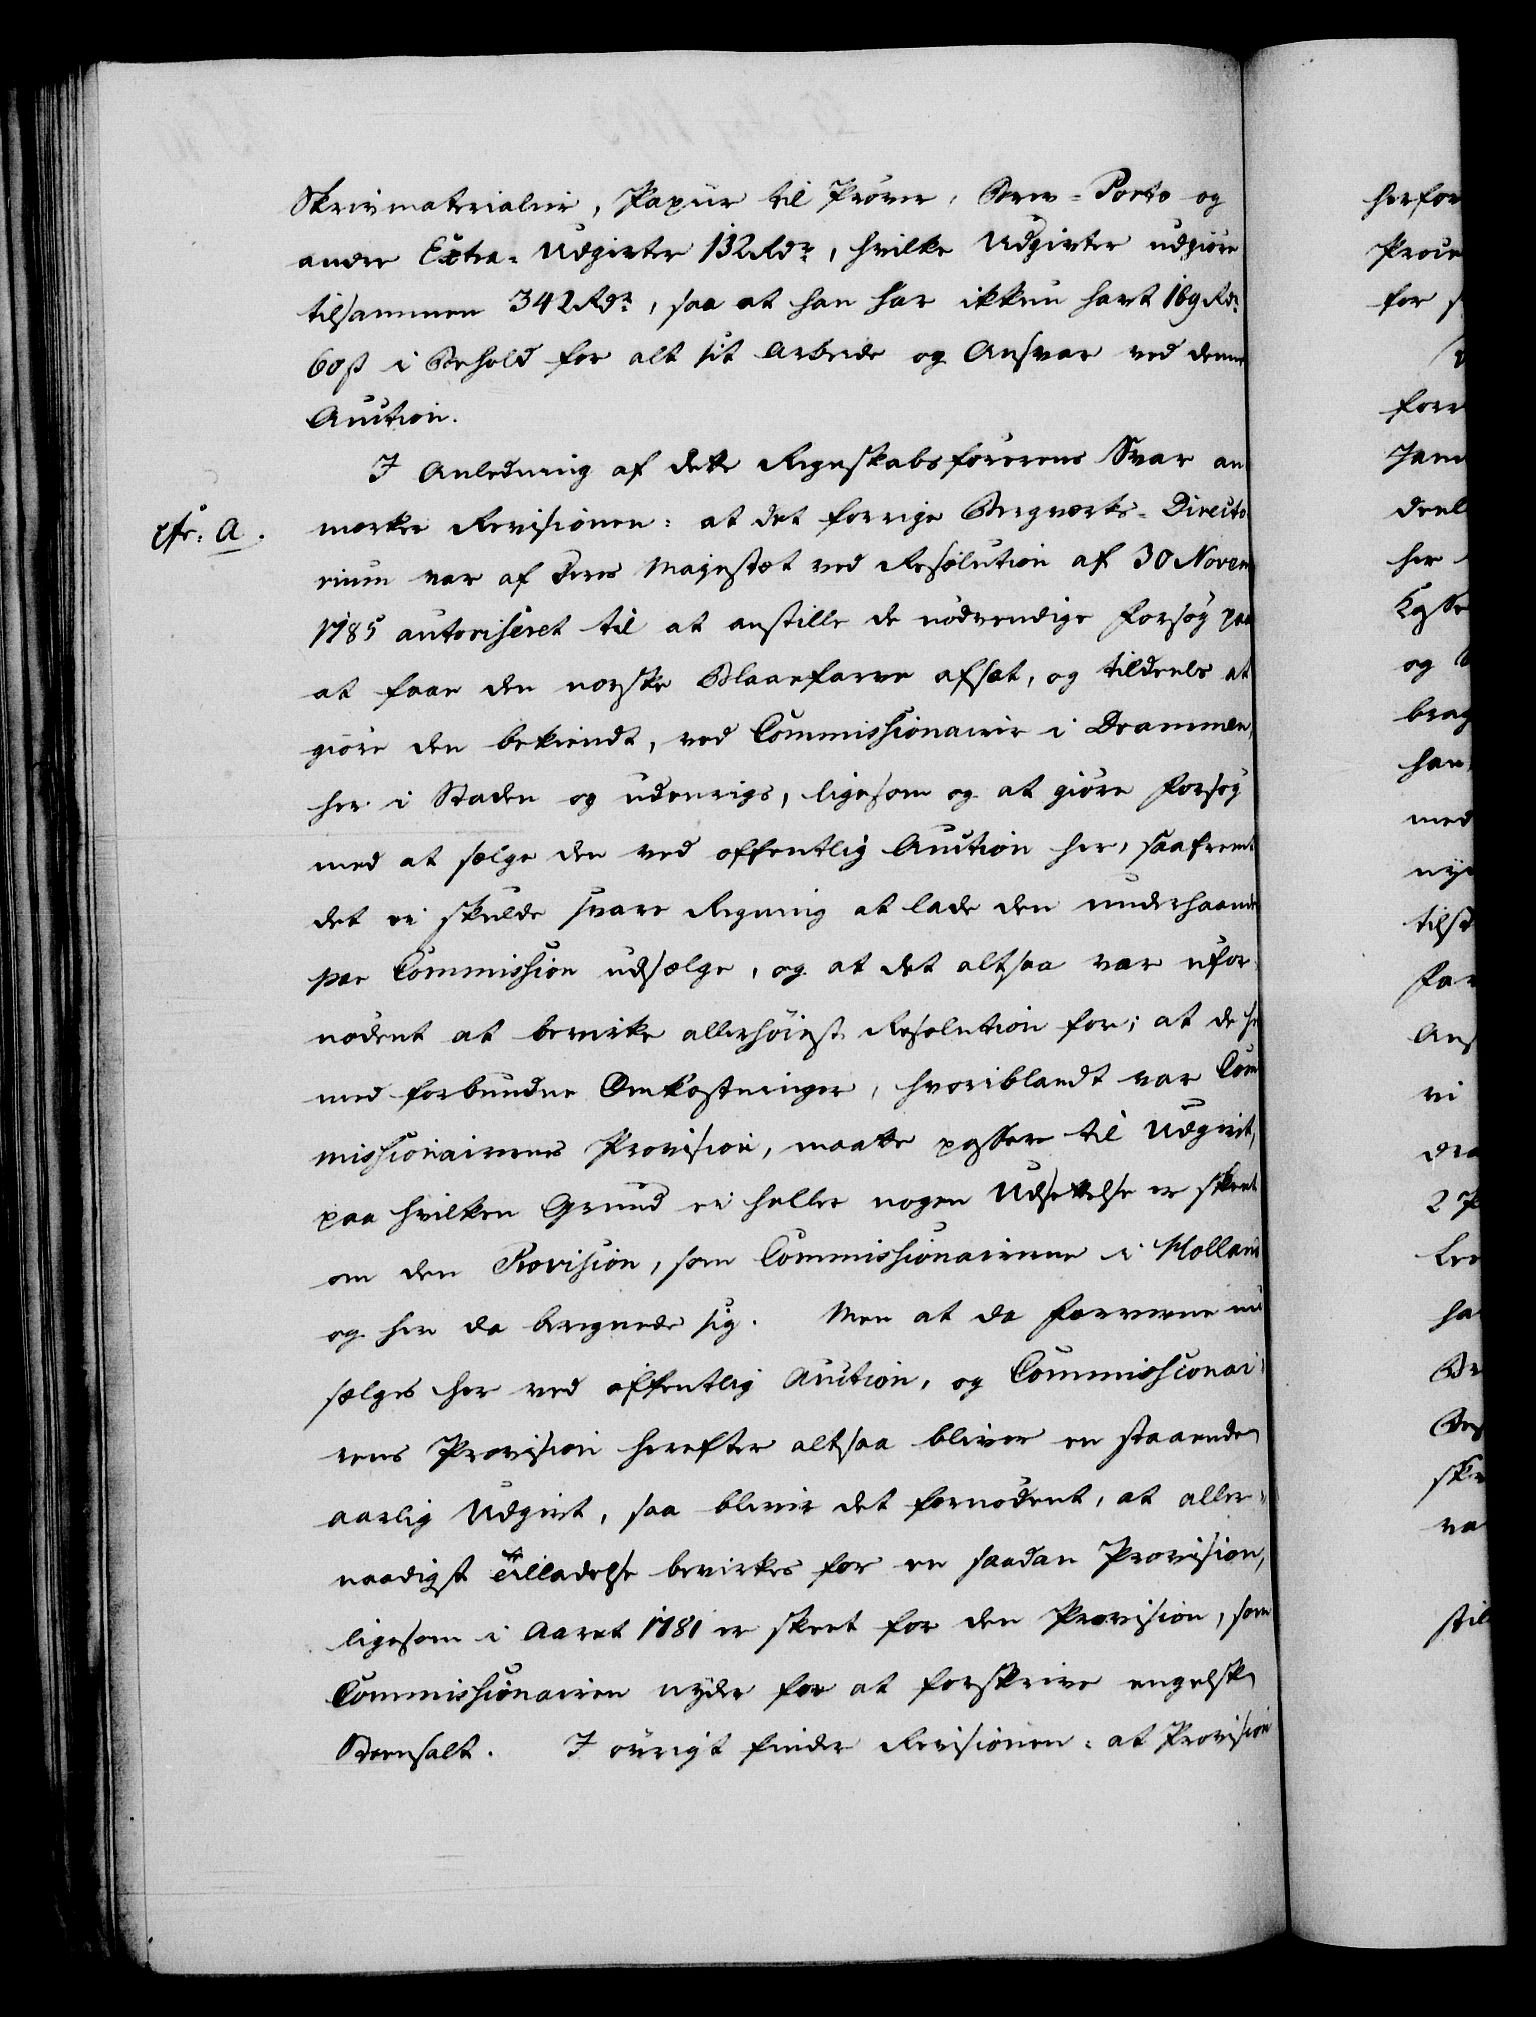 Skrivmaterialier, Papiir til Prøver, Brev-Porto og
andre Extra-Udgivter 132 Rdr, hvilke Udgivter udgiøre
tilsammen 342 Rdr, saa at han har ikkun havt 169 Rdr
60 ß i Behold for alt sit Arbeide og Ansvar ved denne
Auction.
I Anledning af dette Regnskabsførerens Svar an
cfr: A.
mærker Revisionen: at det forrige Bergværks-Directo
rium var af Deres Majestæt ved Resolution af 30 Novem
1785 autoriseret til at anstille de nødvendige Forsøg paa
at faae den norske Blaaefarve afsat, og tildeels at
giøre den bekiendt, ved Commissionairer i Drammen,
her i Staden og udenrigs, ligesom og at giøre Forsøg
med at sælge den ved offentlig Auction her, saafremt
det ei skulde svare Regning at lade den underhaanden
paa Commission udsælge, og at det altsaa var ufor
nødent at bevirke allerhøieste Resolution for; at de her
med forbundne Omkostninger, hvoriblandt var Com
missionairernes Provision, maatte passere til Udgivt,
paa hvilken Grund ei heller nogen Udsettelse er skeet
om den Provision, som Commissionairerne i Holland
og her da beregnede sig. Men at da Farverne nu
sælges her ved offentlig Auction, og Commissionai-
rens Provision herefter altsaa bliver en staaende
aarlig Udgivt, saa bliver det fornødent, at aller-
naadigst Tilladelse bevirkes for en saadan Provision,
ligesom i Aaret 1781 er skeet for den Provision, som
Commissionairen nyder for at forskrive engelsk
Steensalt. I øvrigt finder Revisionen: at Provision